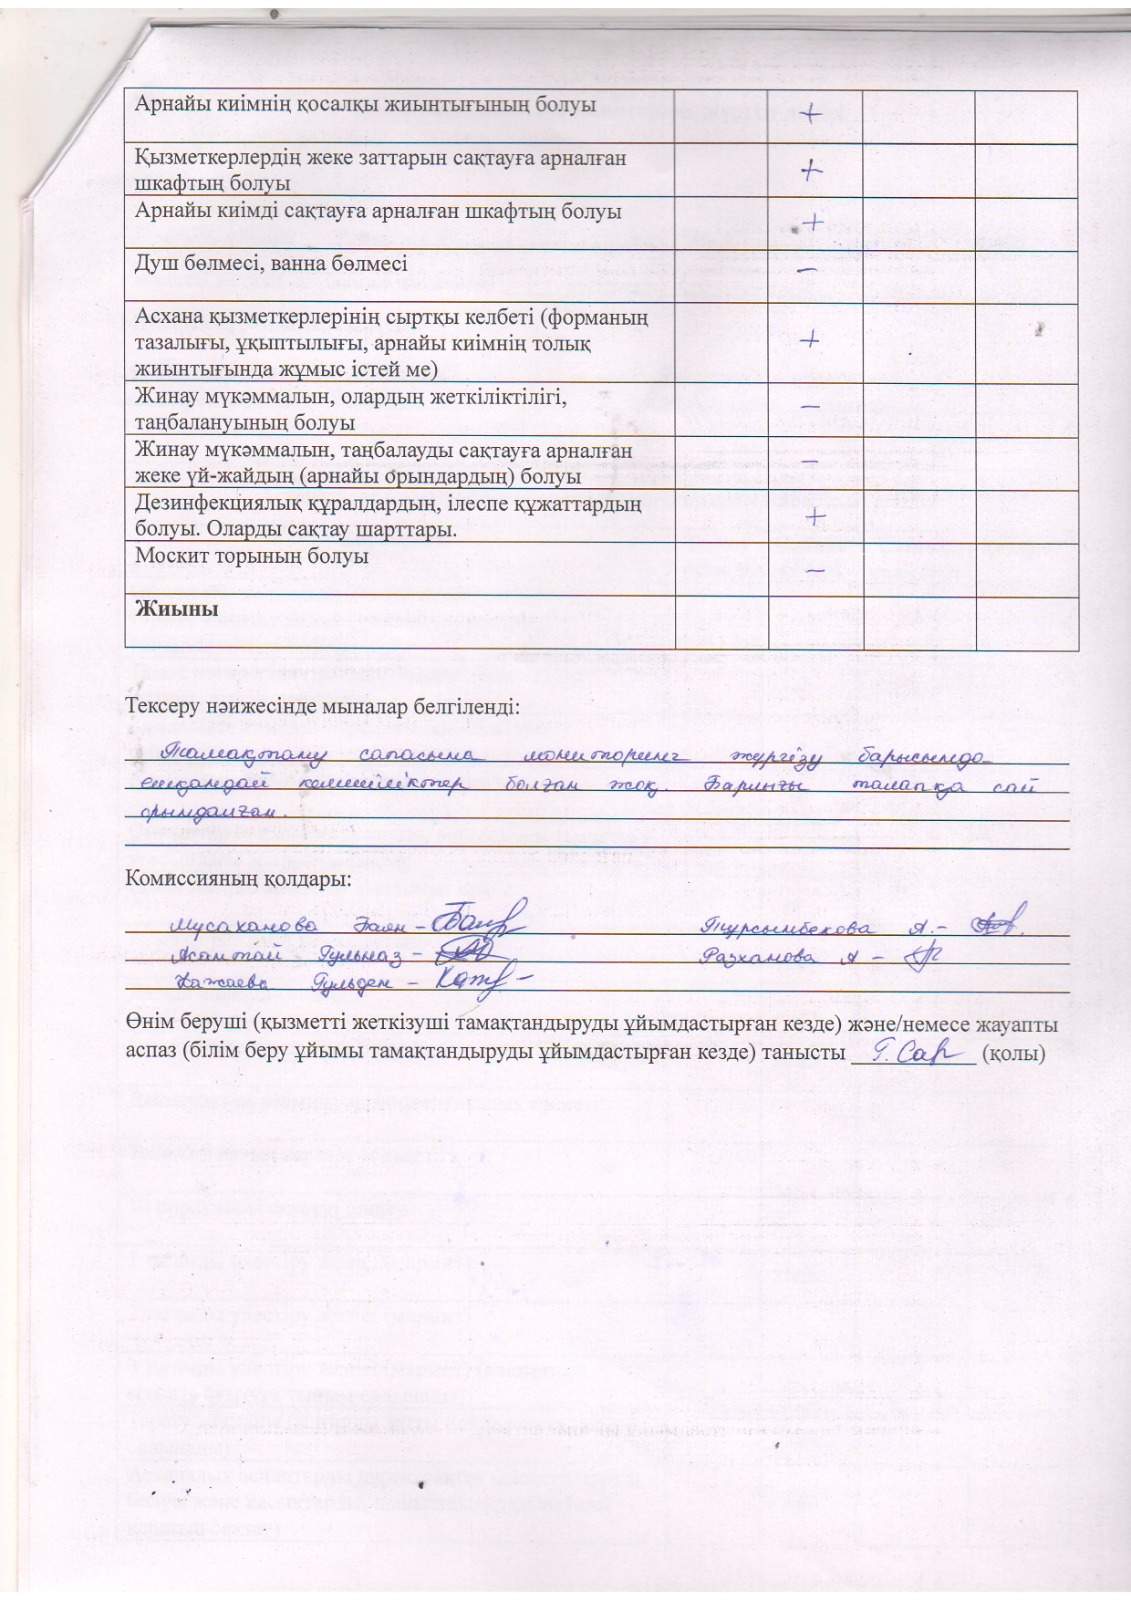 Арнайы киімнің қосалқы жиынтығының болуы +
Қызметкерлердің жеке заттарын сақтауға арналған
шкафтың болуы +
Арнайы киімді сақтауға арналған шкафтың болуы +
Душ бөлмесі, ванна бөлмесі –
Асхана қызметкерлерінің сыртқы келбеті (форманың
тазалығы, ұқыптылығы, арнайы киімнің толық +
жиынтығында жұмыс істей ме)
Жинау мүкәммалын, олардың жеткіліктілігі,
таңбалануының болуы –
Жинау мүкәммалын, таңбалауды сақтауға арналған
жеке үй-жайдың (арнайы орындардың) болуы –
Дезинфекциялық құралдардың, ілеспе құжаттардың
болуы. Оларды сақтау шарттары. +
Москит торының болуы –
Жиыны
Тексеру нәижесінде мыналар белгіленді:
Тамақтану сапасына мониторинг жүргізу барысында
ешқандай кемшіліктер болған жоқ. Барлығы талапқа сай
орындалған.
Комиссияның қолдары:
Мусаханова Баян – Турсымбекова А. –
Асантай Гульназ – Разханова А –
Кажаева Гульден –
Өнім беруші (қызметті жеткізуші тамақтандыруды ұйымдастырған кезде) және/немесе жауапты
аспаз (білім беру ұйымы тамақтандыруды ұйымдастырған кезде) танысты Г. Сар (қолы)